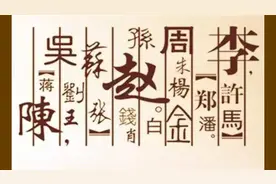 李,
許馬】
【郑潘。
周
朱楊
金
孫
赵。白
錢肖
蘇張】
劉王,
吳
【蔣
陳